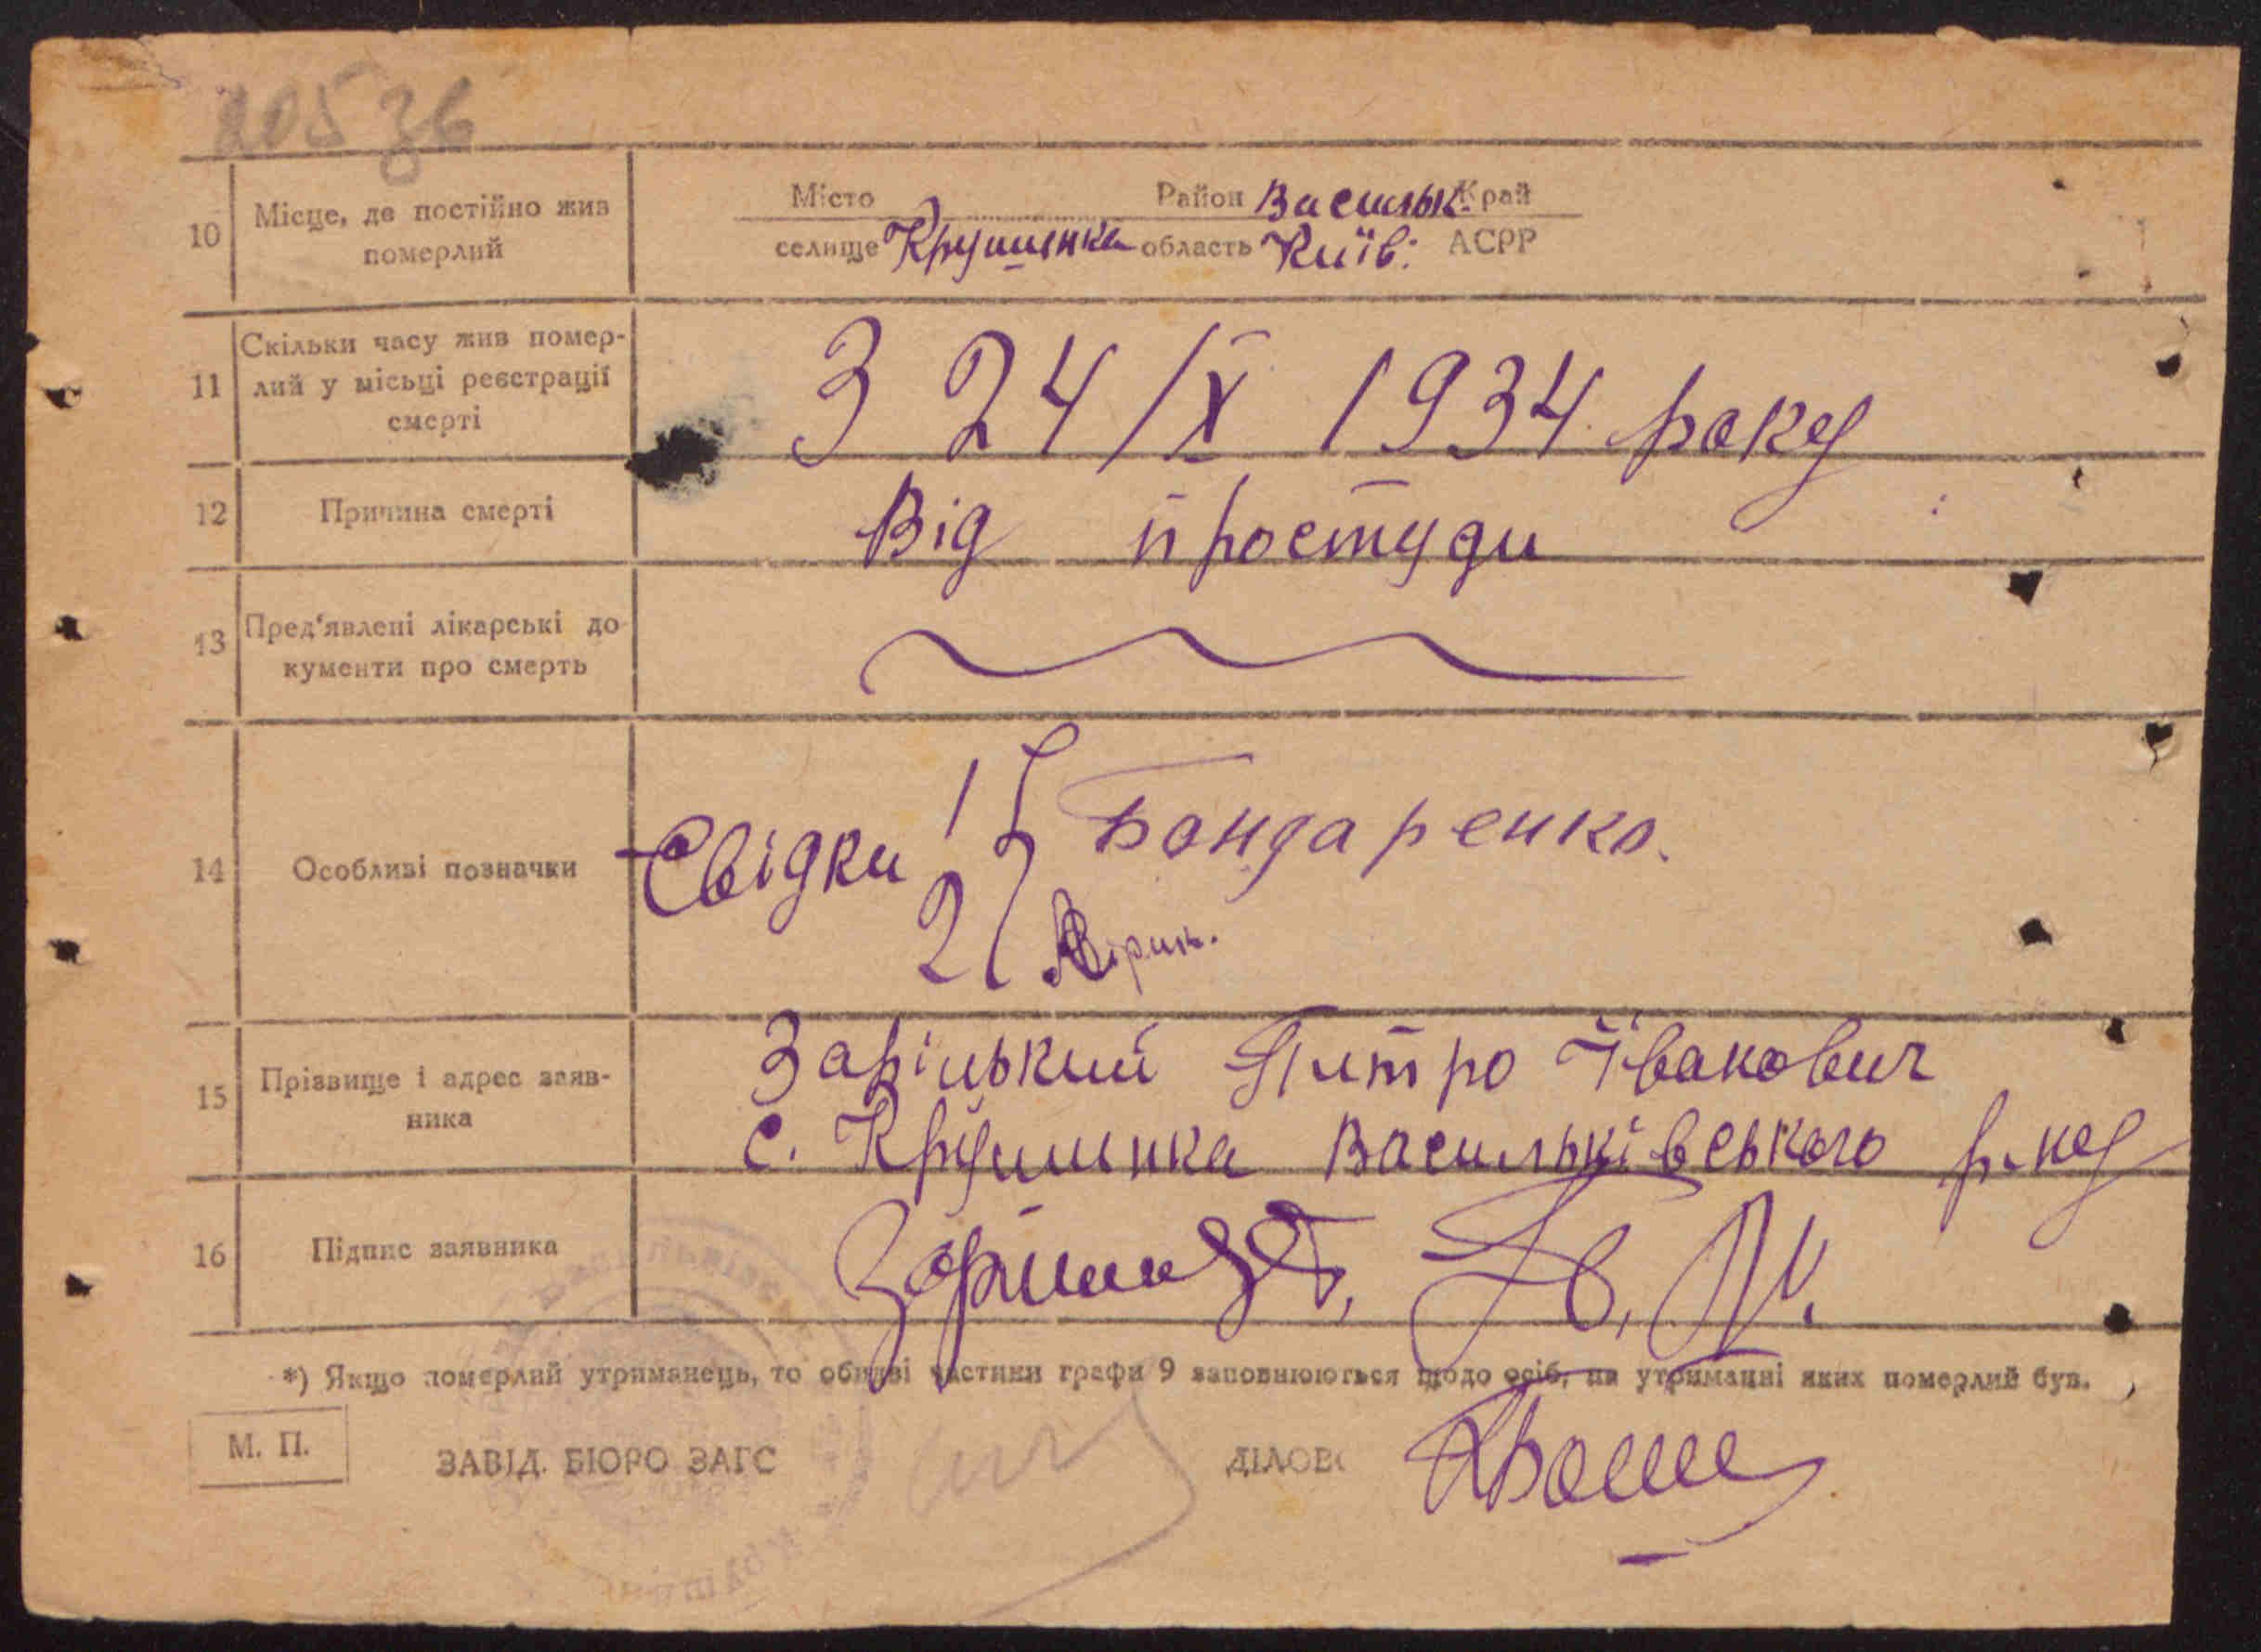 20536
Місто Район Васильк. Край
селище Крушинка область Київ: АСРР
10 Місце, де постійно жив
померлий
11 Скільки часу жив помер-
лий у місьці реєстрації
смерті
З 24/X 1934 року
12 Причина смерті Від простуди
13 Пред'явлені лікарські до
кументи про смерть
14 Особливі позначки Свідки 1 Бондаренко.
2
15 Прізвище і адрес заяв-
ника
Заріцький Питро Іванович
с. Крушинка Васильківського р-ну
16 Підпис заявника
*) Якщо померлий утриманець, то обидві частини графи 9 заповнюються щодо осіб, на утриманні яких померлий був.
М. П. ЗАВІД. БЮРО ЗАГС ДІЛОВ